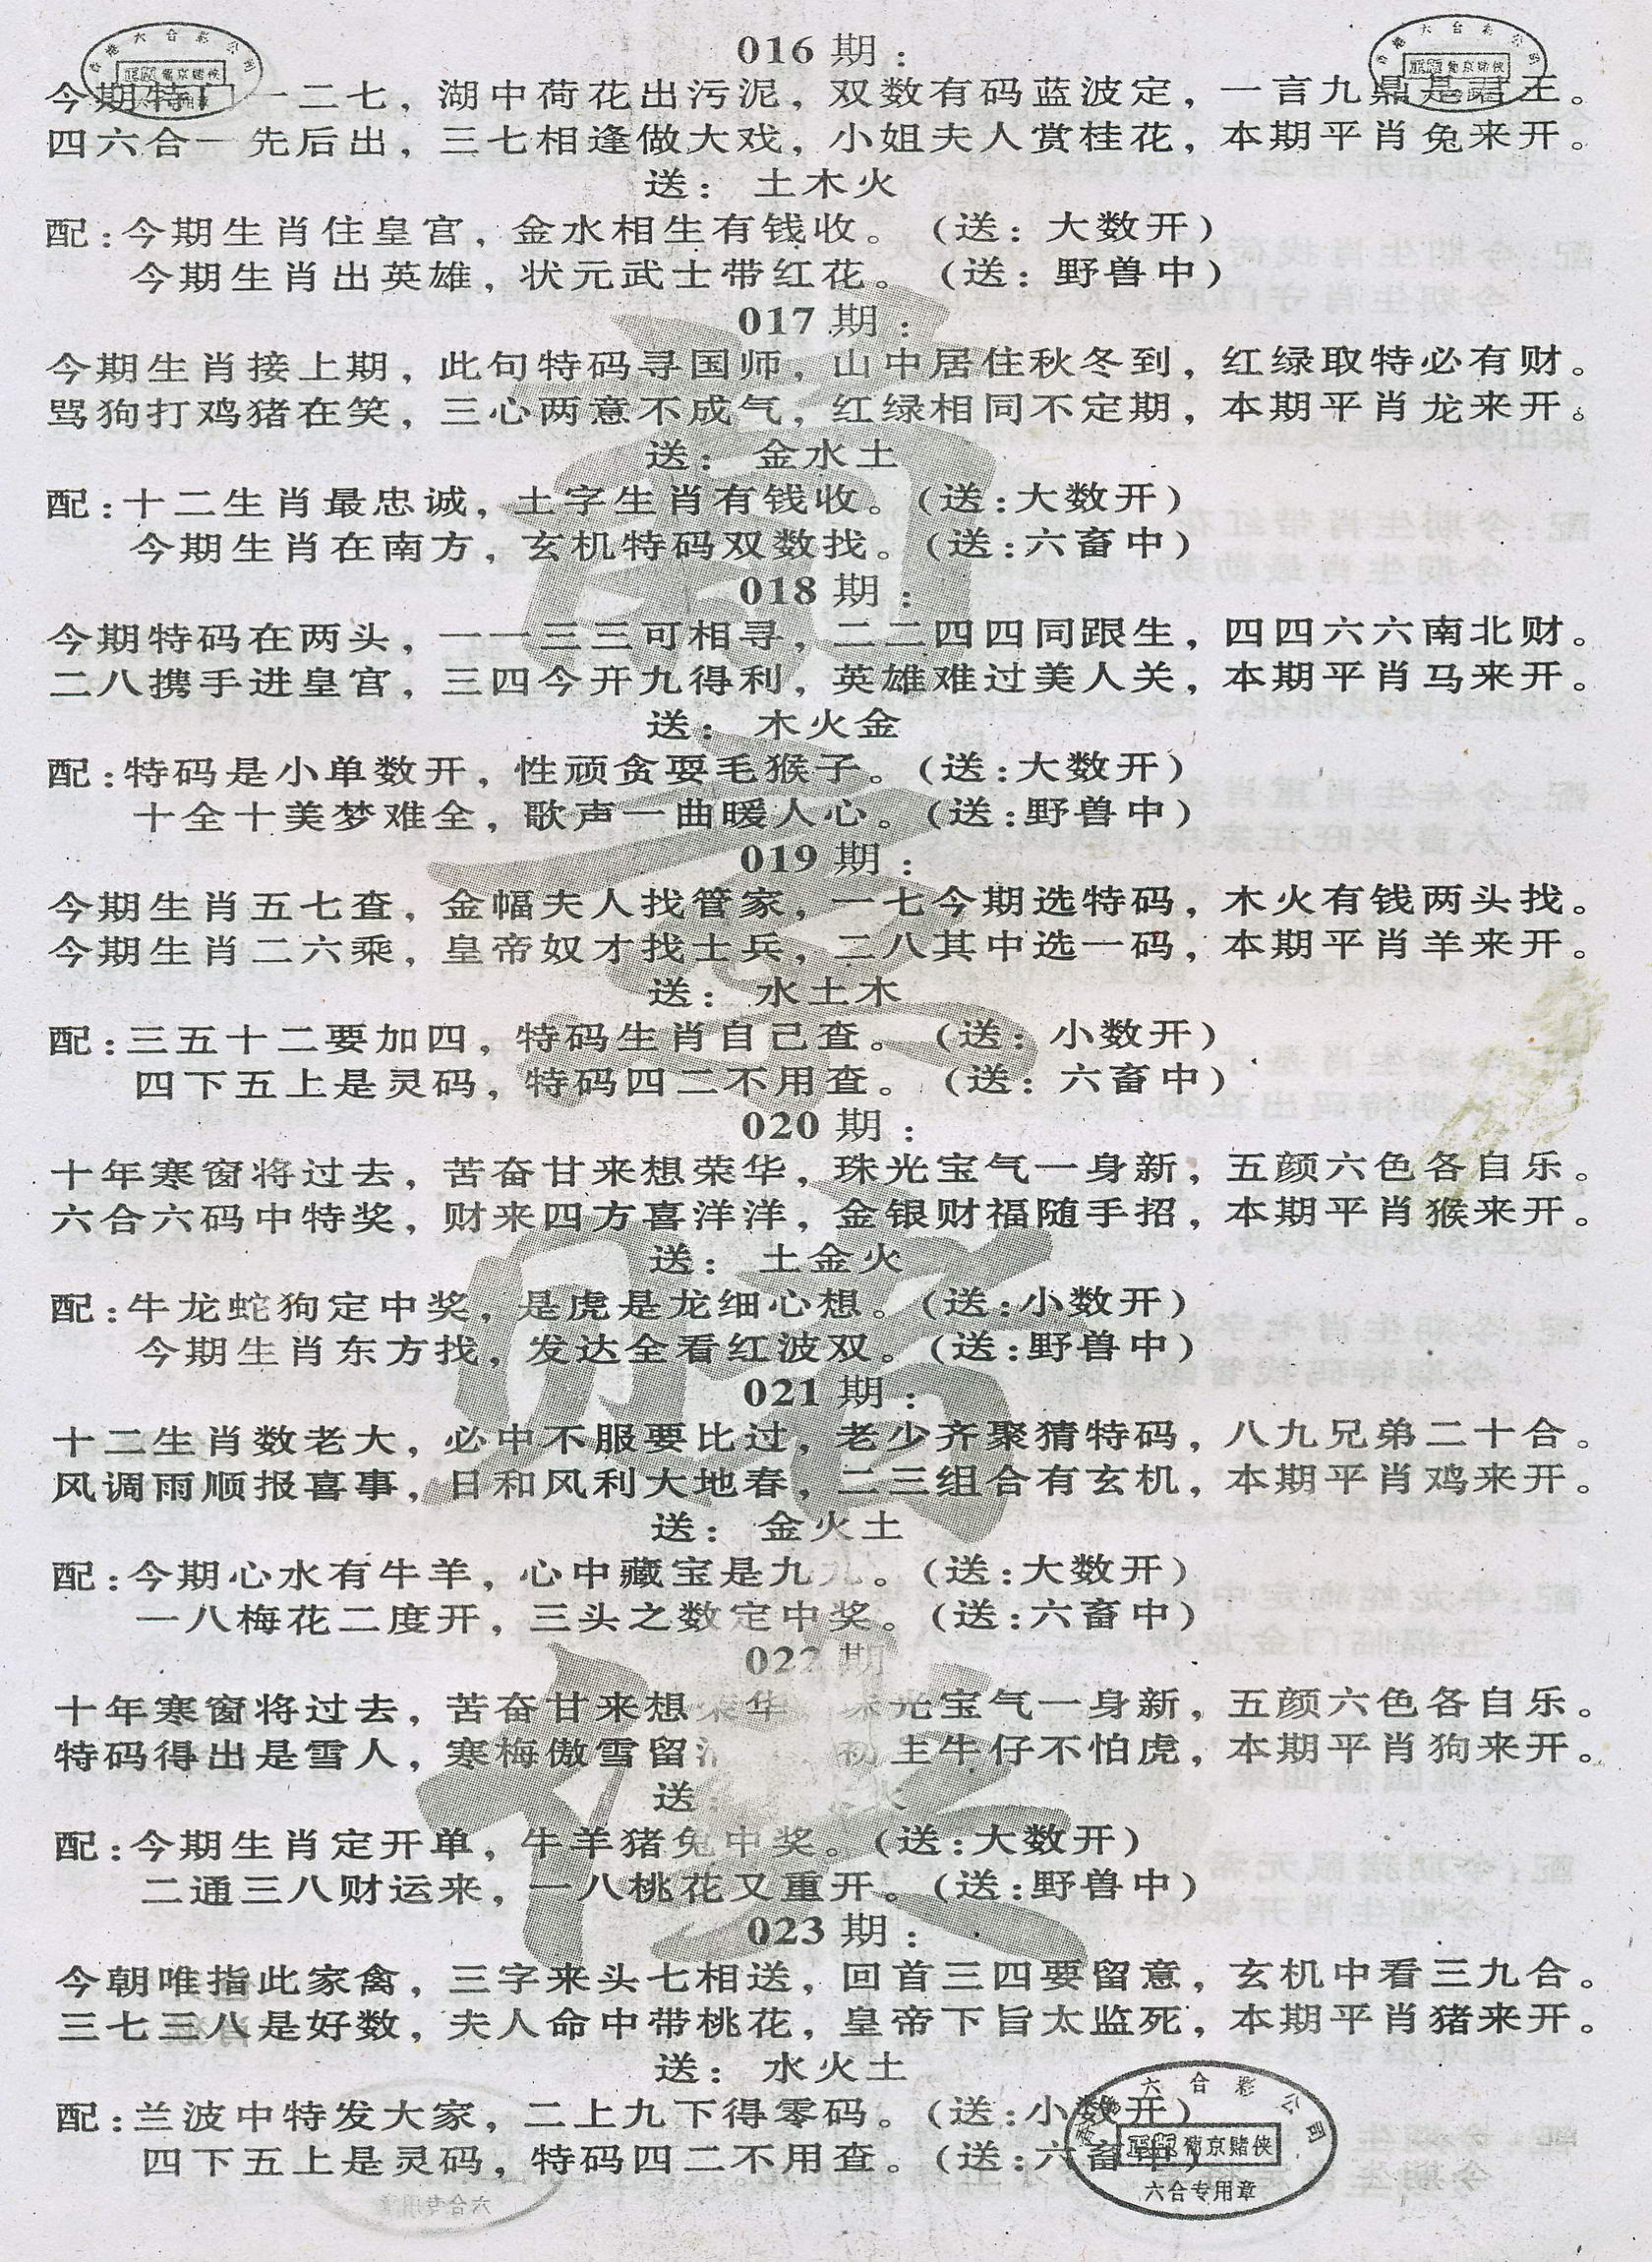 016 期：
今期特 一二七，湖中荷花出污泥，双数有码蓝波定，一言九鼎是君王。
四六合一先后出，三七相逢做大戏，小姐夫人赏桂花，本期平肖兔来开。
送： 土木火
配：今期生肖住皇宫，金水相生有钱收。（送：大数开）
今期生肖出英雄，状元武士带红花。（送：野兽中）
017 期：
今期生肖接上期，此句特码寻国师，山中居住秋冬到，红绿取特必有财。
骂狗打鸡猪在笑，三心两意不成气，红绿相同不定期，本期平肖龙来开。
送： 金水土
配：十二生肖最忠诚，土字生肖有钱收。（送：大数开）
今期生肖在南方，玄机特码双数找。（送：六畜中）
018 期：
今期特码在两头，一一三三可相寻，二二四四同跟生，四四六六南北财。
二八携手进皇宫，三四今开九得利，英雄难过美人关，本期平肖马来开。
送： 木火金
配：特码是小单数开，性顽贪耍毛猴子。（送：大数开）
十全十美梦难全，歌声一曲暖人心。（送：野兽中）
019 期：
今期生肖五七查，金幅夫人找管家，一七今期选特码，木火有钱两头找。
今期生肖二六乘，皇帝奴才找士兵，二八其中选一码，本期平肖羊来开。
送： 水土木
配：三五十二要加四，特码生肖自己查。（送：小数开）
四下五上是灵码，特码四二不用查。（送：六畜中）
020 期：
十年寒窗将过去，苦奋甘来想荣华，珠光宝气一身新，五颜六色各自乐。
六合六码中特奖，财来四方喜洋洋，金银财福随手招，本期平肖猴来开。
送： 土金火
配：牛龙蛇狗定中奖，是虎是龙细心想。（送：小数开）
今期生肖东方找，发达全看红波双。（送：野兽中）
021 期：
十二生肖数老大，必中不服要比过，老少齐聚猜特码，八九兄弟二十合。
风调雨顺报喜事，日和风利大地春，二三组合有玄机，本期平肖鸡来开。
送： 金火土
配：今期心水有牛羊，心中藏宝是九九。（送：大数开）
一八梅花二度开，三头之数定中奖。（送：六畜中）
022 期
十年寒窗将过去，苦奋甘来想荣华 珠光宝气一身新，五颜六色各自乐。
特码得出是雪人，寒梅傲雪留 初生牛仔不怕虎，本期平肖狗来开。
送： 火
配：今期生肖定开单，牛羊猪兔中奖。（送：大数开）
二通三八财运来，一八桃花又重开。（送：野兽中）
023 期：
今朝唯指此家禽，三字来头七相送，回首三四要留意，玄机中看三九合。
三七三八是好数，夫人命中带桃花，皇帝下旨太监死，本期平肖猪来开。
送： 水火土
配：兰波中特发大家，二上九下得零码。（送：小数开）
四下五上是灵码，特码四二不用查。（送：六畜中）
香港六合彩公司
正版葡京赌侠
六合专用章